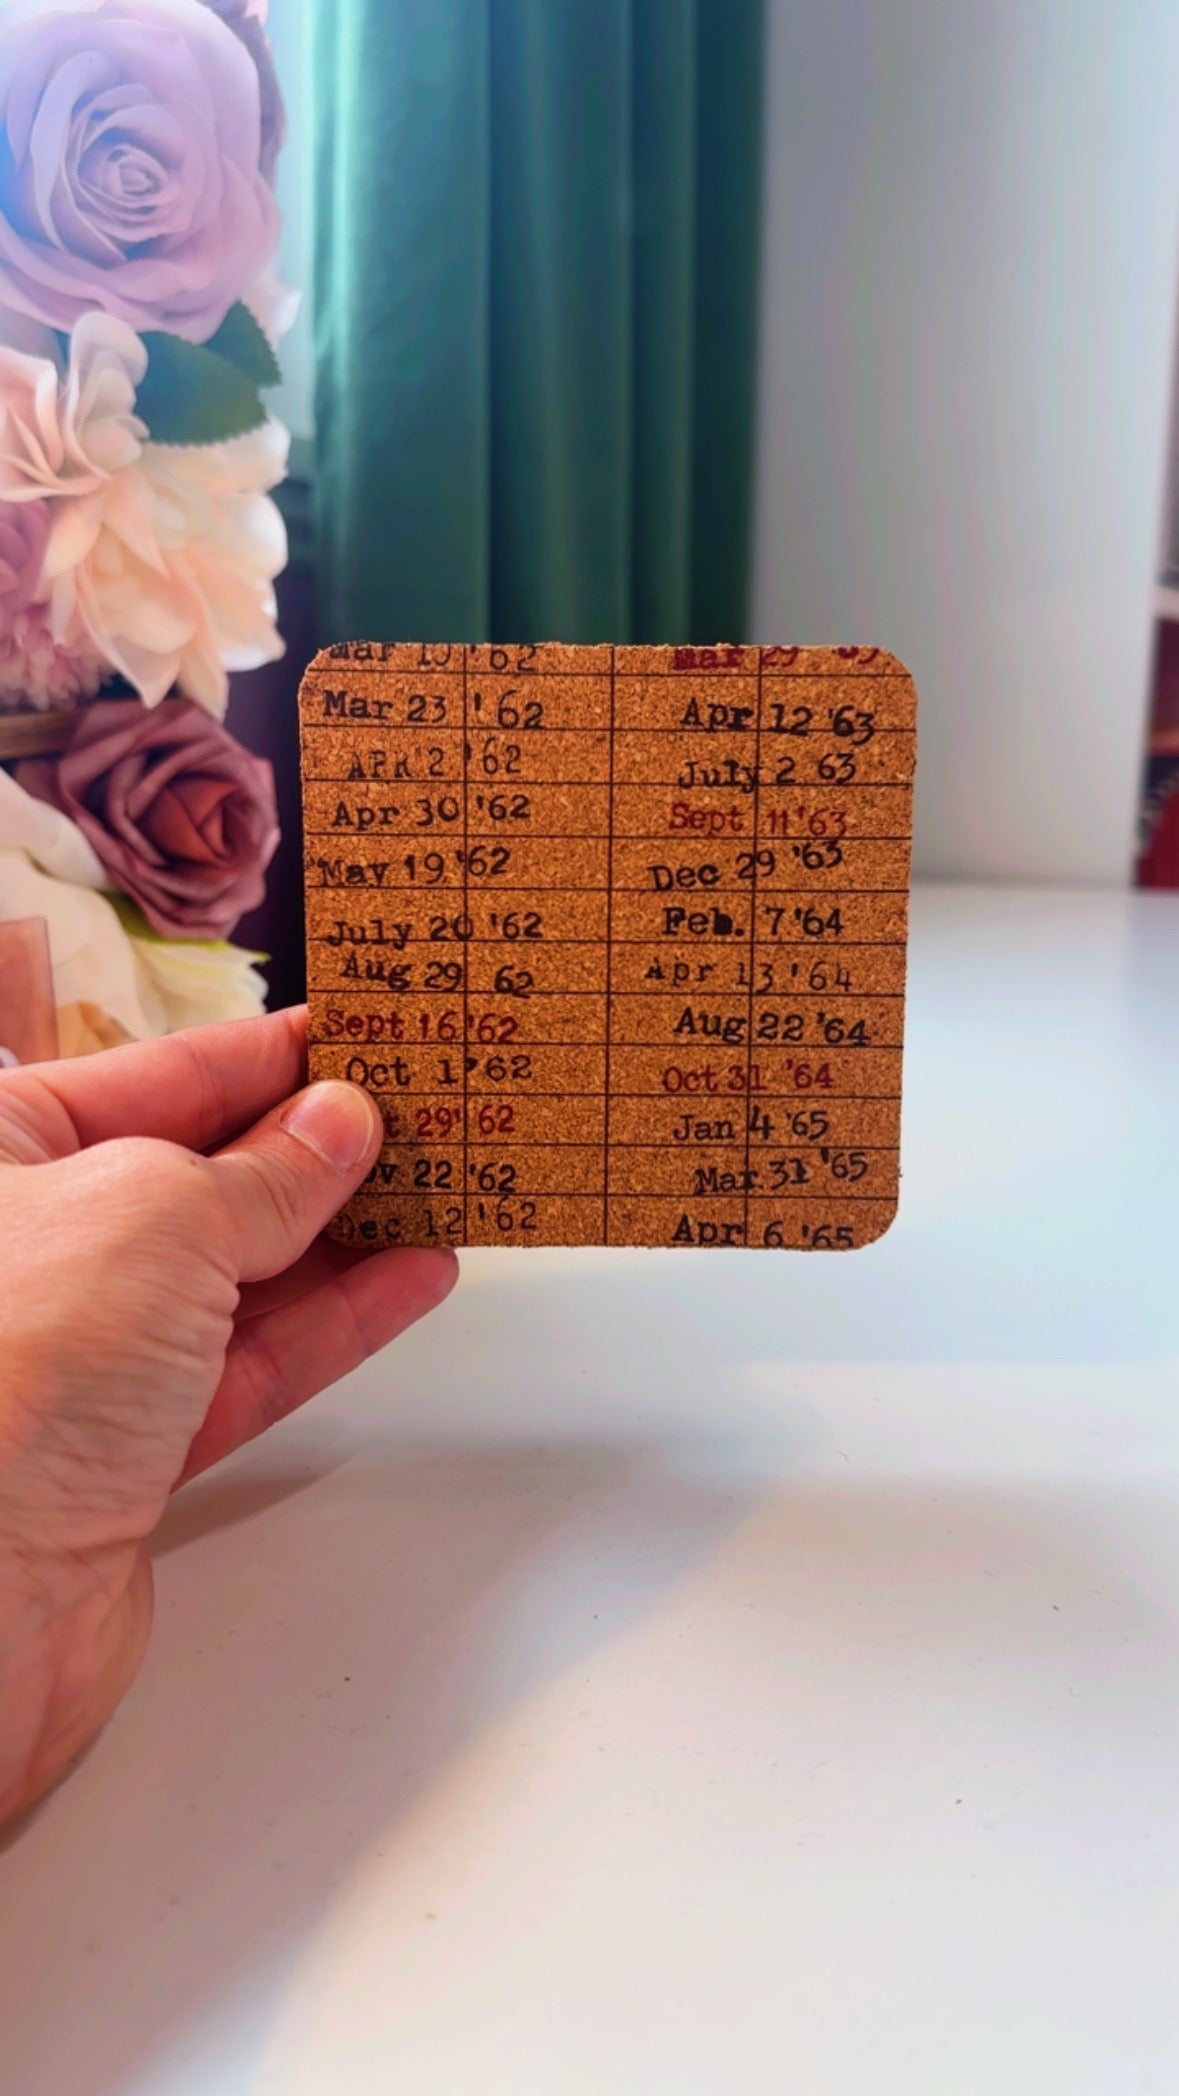 Mar '62
Mar 23 '62
APR 2 '62
Apr 30 '62
May 19 '62
July 20 '62
Aug 29 62
Sept 16 '62
Oct 1 '62
29 '62
22 '62
Dec 12 '62
Mar 29
Apr 12 '63
July 2 63
Sept 11 '63
Dec 29 '63
Feb. 7 '64
Apr 13 '64
Aug 22 '64
Oct 31 '64
Jan 4 '65
Mar 31 '65
Apr 6 '65